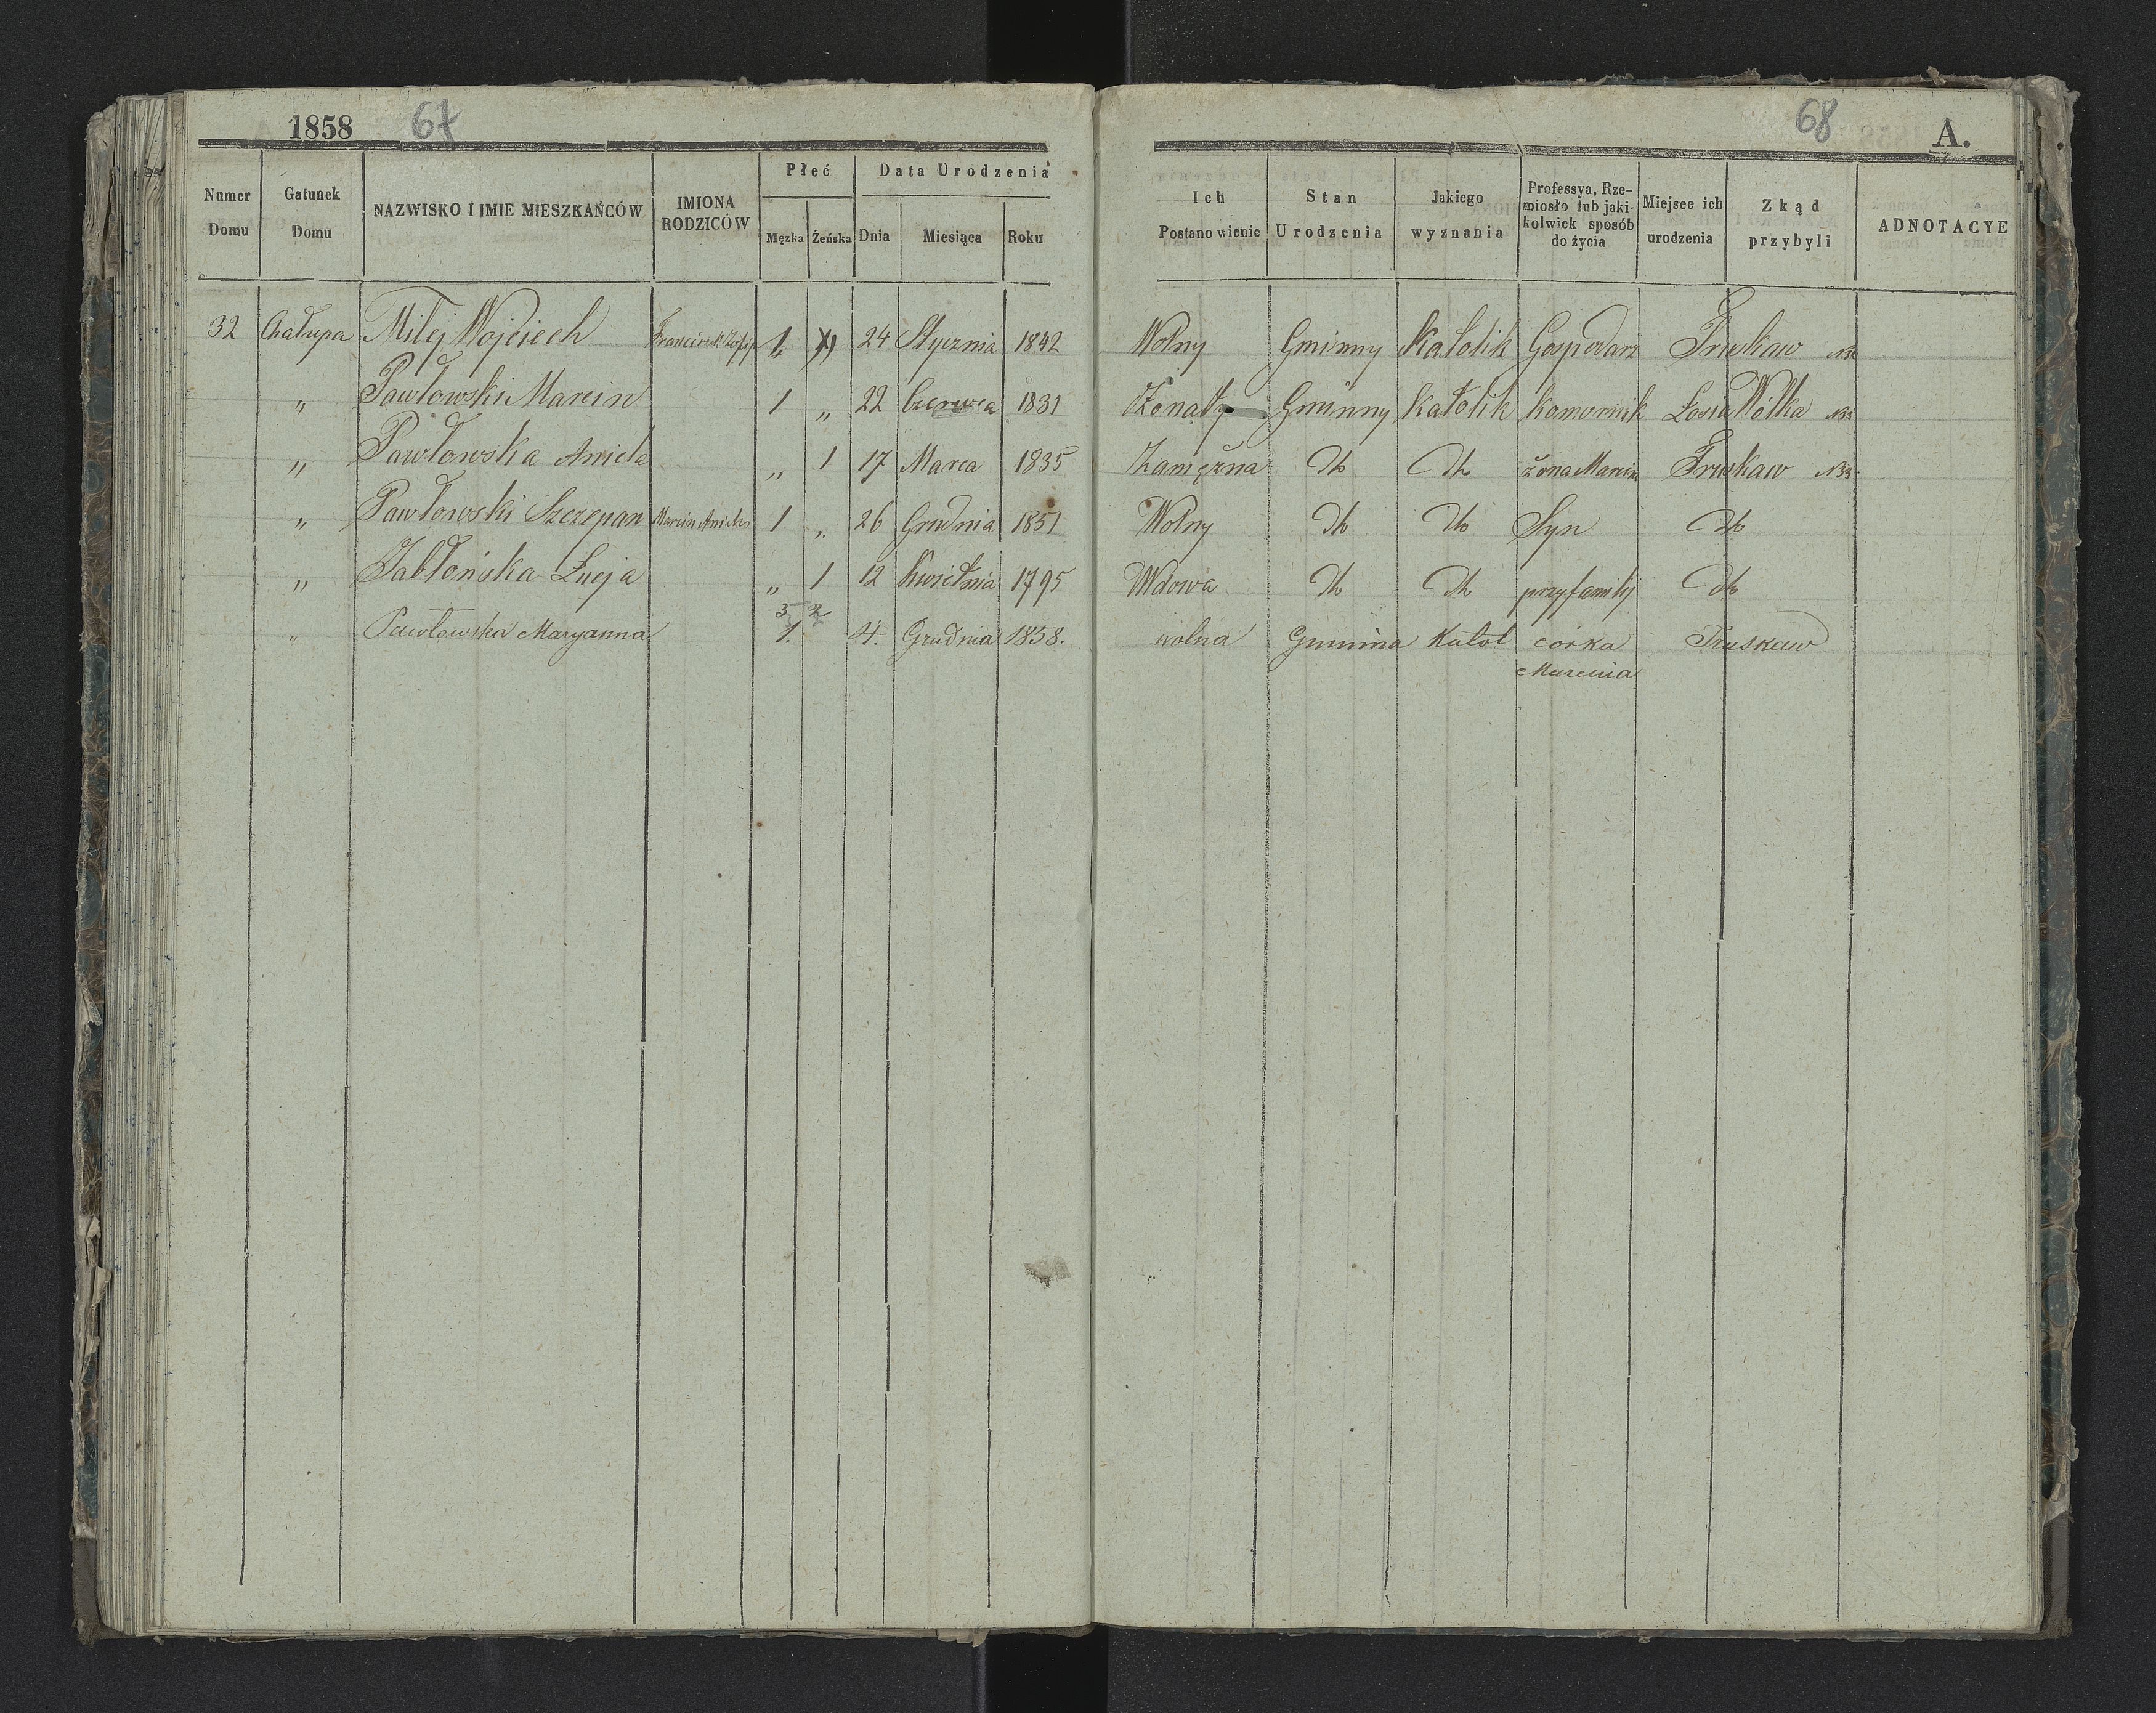 1858 67
Numer Domu Gatunek Domu NAZWISKO I IMIE MIESZKAŃCÓW IMIONA RODZICÓW Płeć Męzka Żeńska Data Urodzenia Dnia Miesiąca Roku
32 Chałupa Miley Wojciech 1 24 Stycznia 1842
" Pawłowski Marcin 1 " 22 Czerwca 1831
" Pawłowska Aniela " 1 17 Marca 1835
" Pawłowski Szczepan Marcin Aniela 1 " 26 Grudnia 1851
" Jabłońska Łucja " 1 12 Kwietnia 1795
3 2
" Pawłowska Maryanna 1. 4. Grudnia 1858.
68 A.
Ich Postanowienie Stan Urodzenia Jakiego wyznania Professya, Rzemiosło lub jakikolwiek sposób do życia Miejsce ich urodzenia Zkąd przybyli ADNOTACYE
Wolny Gminny Katolik Gospodarz Truskaw
Żonaty Gminny Katolik Komornik Łosia Wólka
Zamężna dto dto żona Marcina Truskaw
Wolny dto dto Syn dto
Wdowa dto dto przy familij dto
wolna Gminna Katol córka Truskaw
Marcina